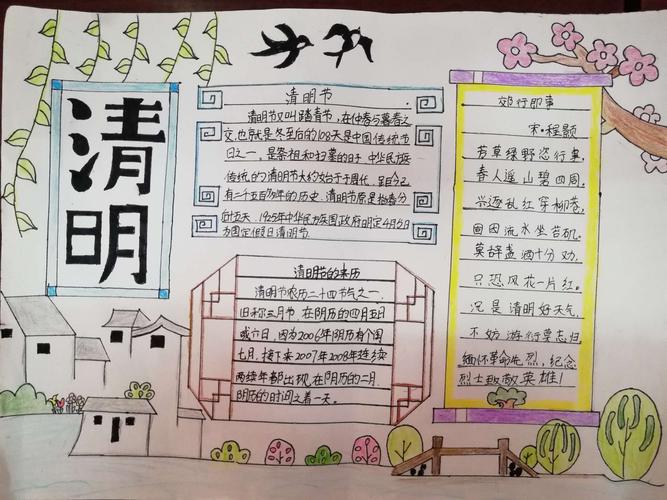 清明
清明节
清明节又叫踏青节,在仲春与暮春之
交,也就是冬至后的108天是中国传统节
日之一,是祭祖和扫墓的日子 中华民族
传统的清明节大约始于于周代,至今已
有二千五百多年的历史,清明节原是指春分
后十五天,1935年中华民族国政府明定4月5日
为国定假日清明节.
清明节的来历
清明节农历二十四节气之一,
旧称三月节,在阴历的四月五日
或六日,因为2006年阴历有个闰
七月,接下来2007年2008年连续
两续年都出现,在阴历的二月.
阴历的时间之着一天.
郊行即事
宋·程颢
芳草绿野恣行事,
春人遥山碧四周,
兴逐乱红穿柳巷,
困因流水坐苔矶.
莫辞盏酒十分劝,
只恐风花一片红.
况是清明好天气,
不妨游衍莫忘归.
缅怀革命先烈,纪念
烈士致敬英雄!